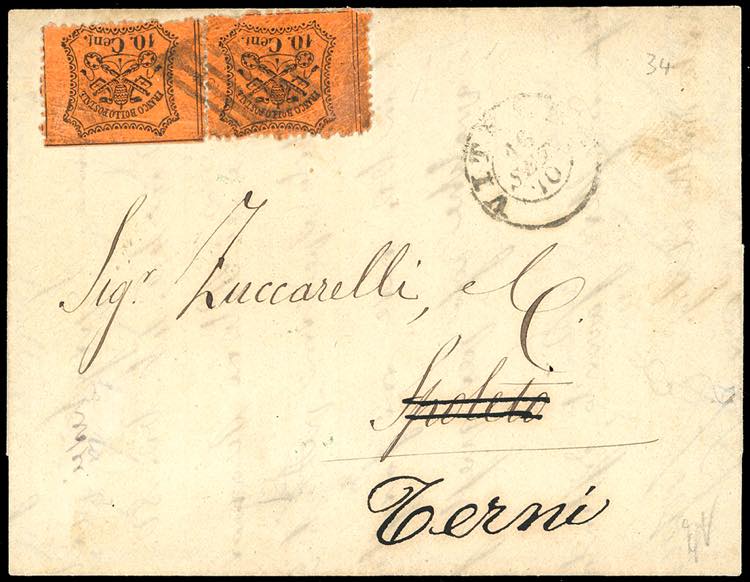 10. Cent.
FRANCO BOLLO POSTALE
10. Cent.
FRANCO BOLLO POSTALE
34
16
SET
70
Sigr. Zuccarelli, e C.
Spoleto
Terni